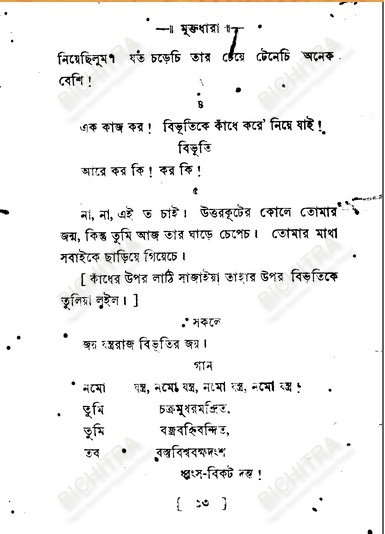 —॥ মুক্তধারা ॥—
নিয়েছিলুম। যত চড়েচি তার চেয়ে টেনেচি অনেক
বেশি!
৪
এক কাজ কর! বিভূতিকে কাঁধে করে' নিয়ে যাই!
বিভূতি
আরে কর কি! কর কি!
৫
না, না, এই ত চাই। উত্তরকূটের কোলে তোমার
জন্ম, কিন্তু তুমি আজ তার ঘাড়ে চেপেচ। তোমার মাথা
সবাইকে ছাড়িয়ে গিয়েচে।
[ কাঁধের উপর লাঠি সাজাইয়া তাহার উপর বিভূতিকে
তুলিয়া লইল। ]
সকলে
জয় যন্ত্ররাজ বিভূতির জয়।
গান
নমো যন্ত্র, নমো যন্ত্র, নমো যন্ত্র, নমো যন্ত্র!
তুমি চক্রমুখরমন্দ্রিত,
তুমি বজ্রবহ্নিবন্দিত,
তব বস্তুবিশ্ববক্ষদংশ
ধ্বংস-বিকট দন্ত!
[ ১৩ ]
BICHITRA
BICHITRA
BICHITRA
BICHITRA
BICHITRA
BICHITRA